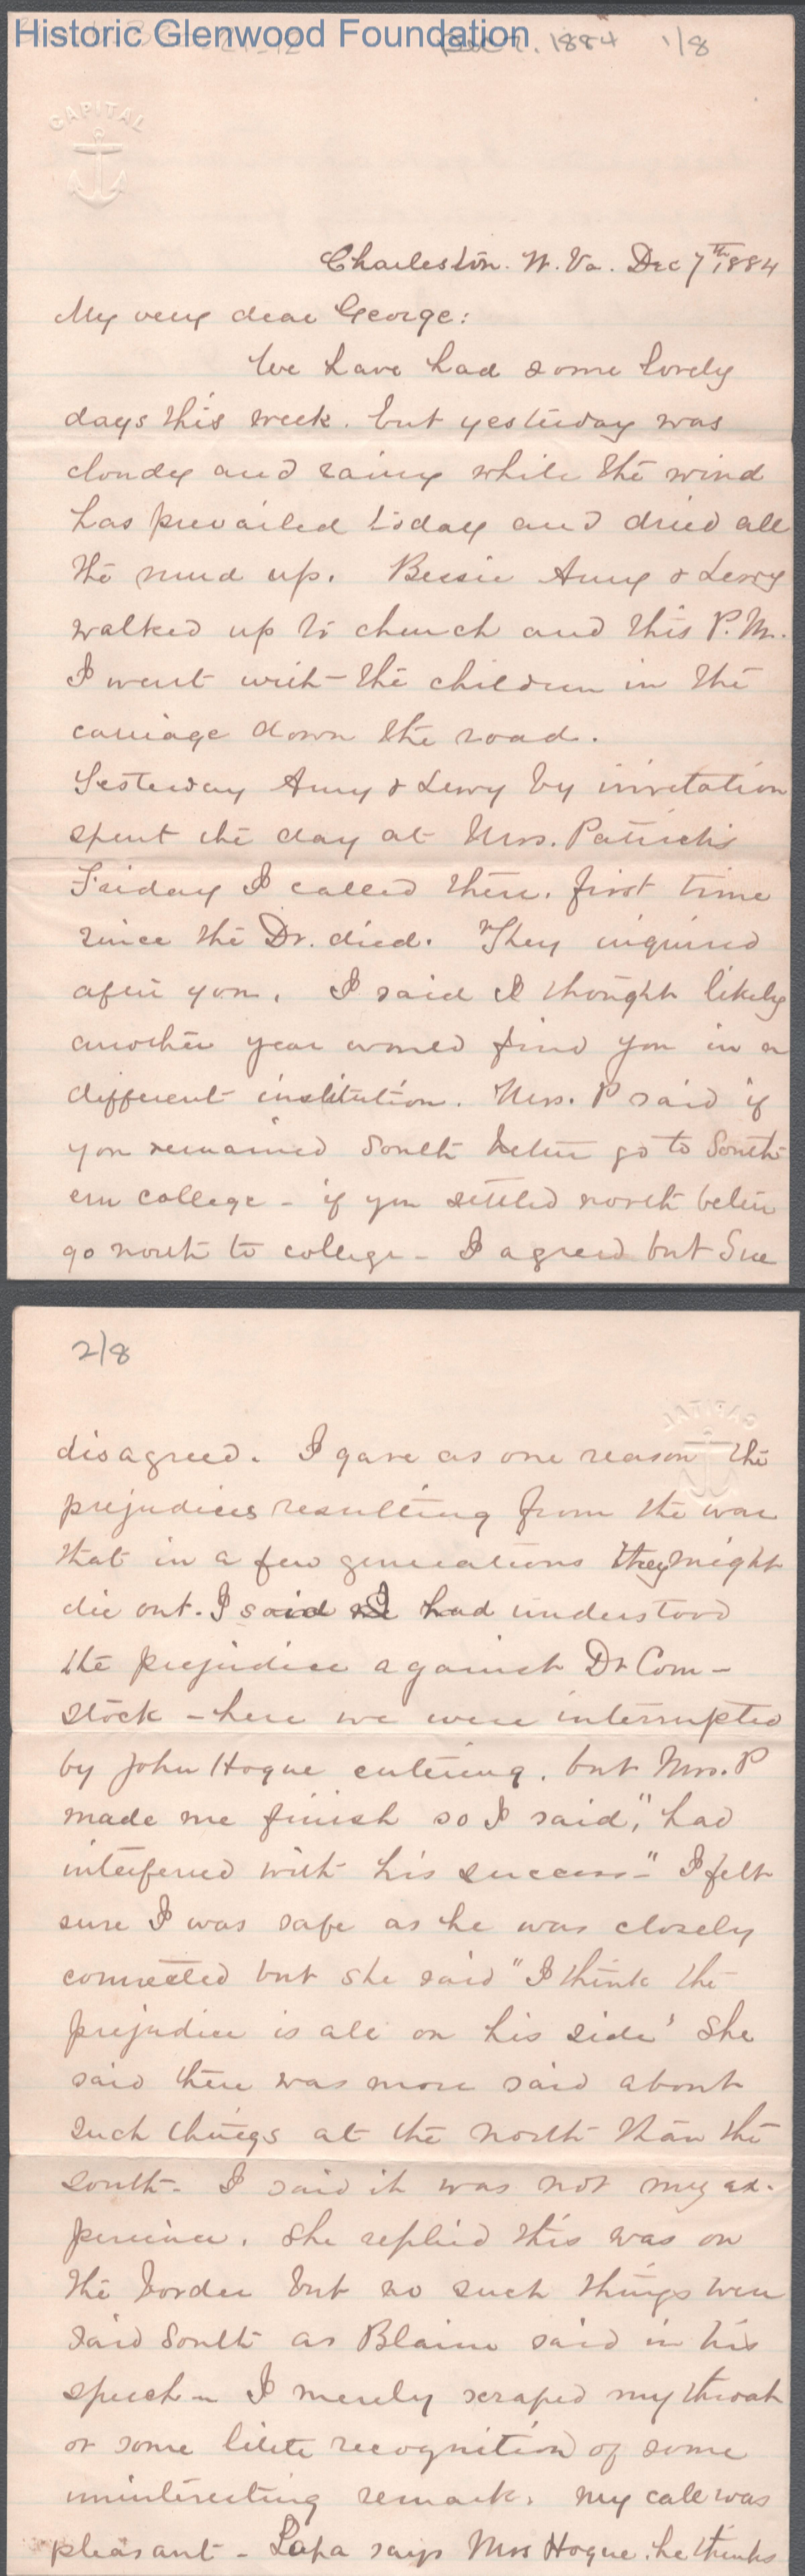 Historic Glenwood Foundation
Dec 7, 1884 1/8
CAPITAL
Charleston. W. Va. Dec 7th 1884
My very dear George:
We have had some lovely
days this week. but yesterday was
cloudy and rainy while the wind
has prevailed today and dried all
the mud up. Bessie Amy & Lewy
walked up to church and this P.M.
I went with the children in the
carriage down the road.
Yesterday Amy & Lewy by invitation
spent the day at Mrs. Patrick's
Friday I called there. first time
since the Dr. died. They inquired
after you. I said I thought likely
another year would find you in a
different institution. Mrs. P said if
you remained South better go to South-
ern college - if you settled north better
go north to college - I agreed but Sue
2/8
CAPITAL
disagreed. I gave as one reason the
prejudices resulting from the war
that in a few generations they might
die out. I said I had understood
the prejudice against Dr Com-
stock - here we were interrupted
by John Hogue entering. but Mrs. P
made me finish so I said, "had
interfered with his success-" I felt
sure I was safe as he was closely
connected but she said "I think the
prejudice is all on his side' She
said there was more said about
such things at the north than the
south - I said it was not my ex-
perience. She replied this was on
the border but no such things were
said South as Blaine said in his
speech - I merely scraped my throat
or some little recognition of some
uninteresting remark. My call was
pleasant - Papa says Mrs Hogue. he thinks